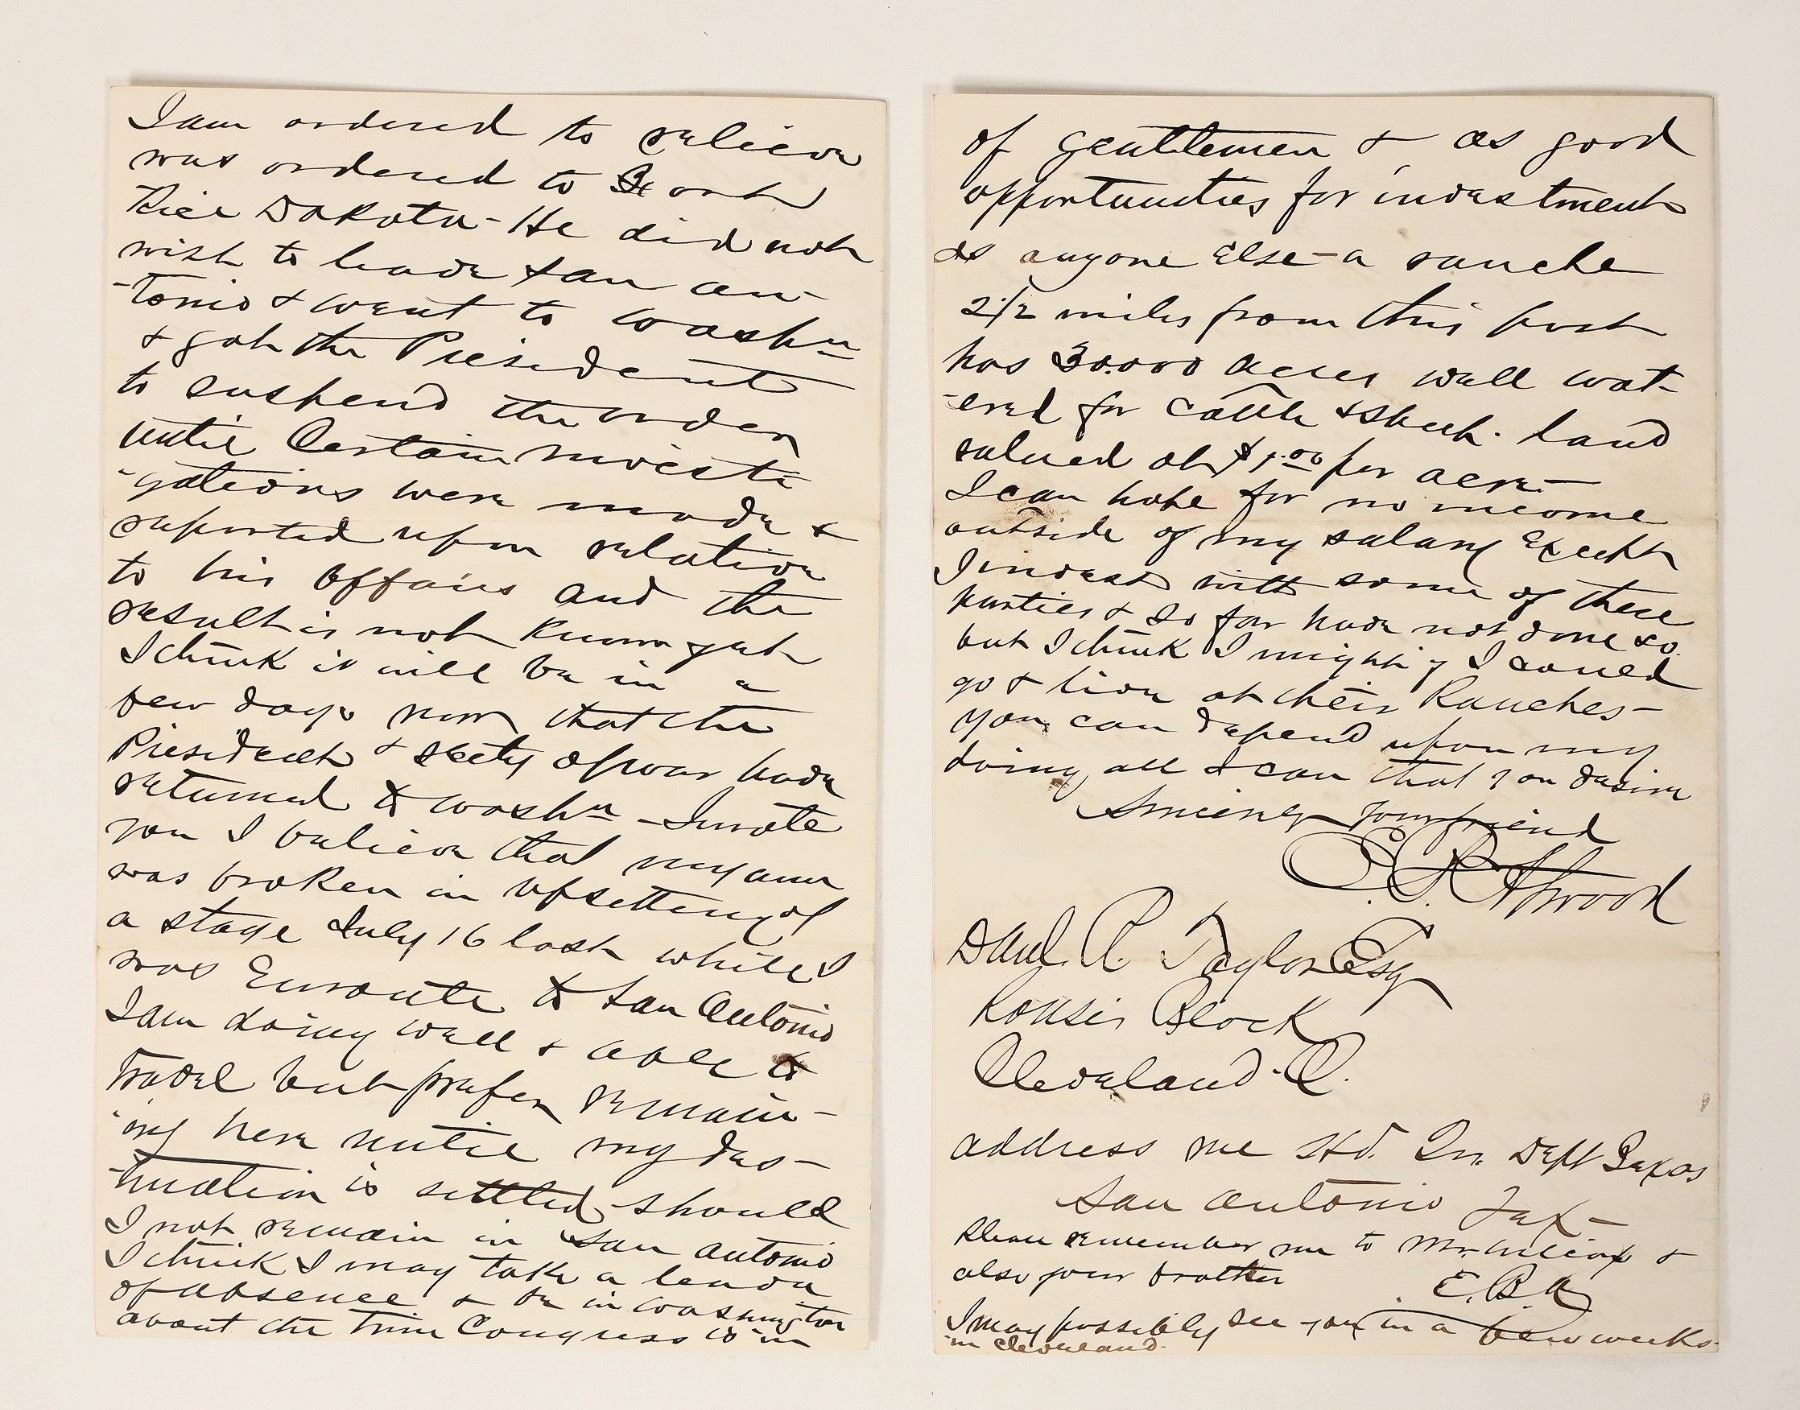 I am ordered to relieve
was ordered to Fort
Rice Dakota - He did not
wish to leave San An-
-tonio & went to Washn
& got the President
to suspend the order
until Certain investi
-gations were made &
reported upon relative
to his affairs and the
result is not known yet
I think it will be in a
few days now that the
President & Secty of War have
returned to Washn - I wrote
you I believe that my arm
was broken in upsetting of
a stage July 16 last while I
was Enroute to San Antonio
I am doing well & able to
travel but prefer remain-
-ing here until my des-
-tination is settled, should
I not remain in San Antonio
I think I may take a leave
of absence & be in Washington
about the time Congress is in
of gentlemen & as good
opportunities for investment
as anyone Else - a ranche
2 1/2 miles from this post
has 30.000 acres well wat-
-ered for Cattle & Sheep. land
valued at $1.00 per acre -
I can hope for no income
outside of my salary Except
I invest with some of these
parties & so far have not done so.
but I think I might if I could
go & live at their Ranches -
You can depend upon my
doing all I can that you desire
Sincerely your friend
E. B. Atwood
Danl. R. Taylor Esq
Rouse's Block
Cleveland. O.
address me Hd. Qrs. Dept Texas
San Antonio Tex -
Please remember me to Mr. Wilcox &
also your brother E. B. A
I may possibly see you in a few weeks
in Cleveland.